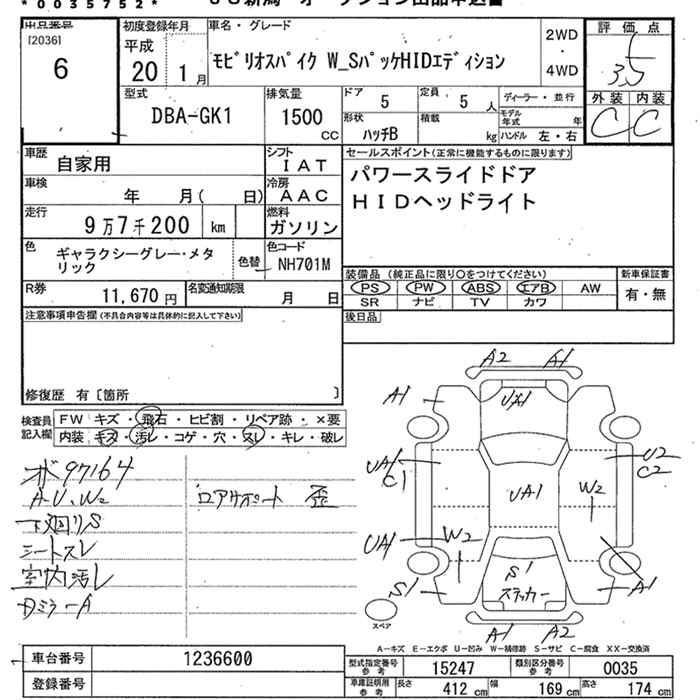 *0035752*
出品番号
[2036]
6
初度登録年月
平成
20 1月
車名・グレード
モビリオスパイク W_SパッケHIDエディション
2WD
・
4WD
評価点
3.5
外装 内装
C C
型式
DBA-GK1
排気量
1500
CC
ドア
5
定員
5 人
形状
ハッチB
積載
kg
ディーラー・並行
モデル年式 年
ハンドル 左・右
車歴
自家用
シフト
IAT
車検
年 月( 日)
冷房
AAC
走行
9万7千200 km
燃料
ガソリン
色
ギャラクシーグレー・メタ
リック
色替
色コード
NH701M
R券
11,670 円
名変通知期限
月 日
セールスポイント(正常に機能するものに限ります)
パワースライドドア
HIDヘッドライト
装備品(純正品に限り○をつけてください)
PS PW ABS エアB AW
SR ナビ TV カワ
新車保証書
有・無
後日品
注意事項申告欄(不具合内容等は具体的に記入して下さい)
修復歴 有〔箇所 〕
検査員
記入欄
FW キズ・飛石・ヒビ割・リペア跡・×要
内装 キズ・汚レ・コゲ・穴・スレ・キレ・破レ
97164
A・U、W2
下廻りS
シートスレ
室内汚レ
ロアサポート 歪
A2 A1
A1
UA1
U2
C2
UA1
C1
UA1
W2
W2
UA1
S1
S1
ステッカー
A1
A1 A2
スペア
A-キズ E-エクボ U-凹み W-補修跡 S-サビ C-腐食 XX-交換済
車台番号
1236600
登録番号
型式指定番号
参考
15247
類別区分番号
参考
0035
車庫証明用
参考
長さ 412 cm 幅 169 cm 高さ 174 cm